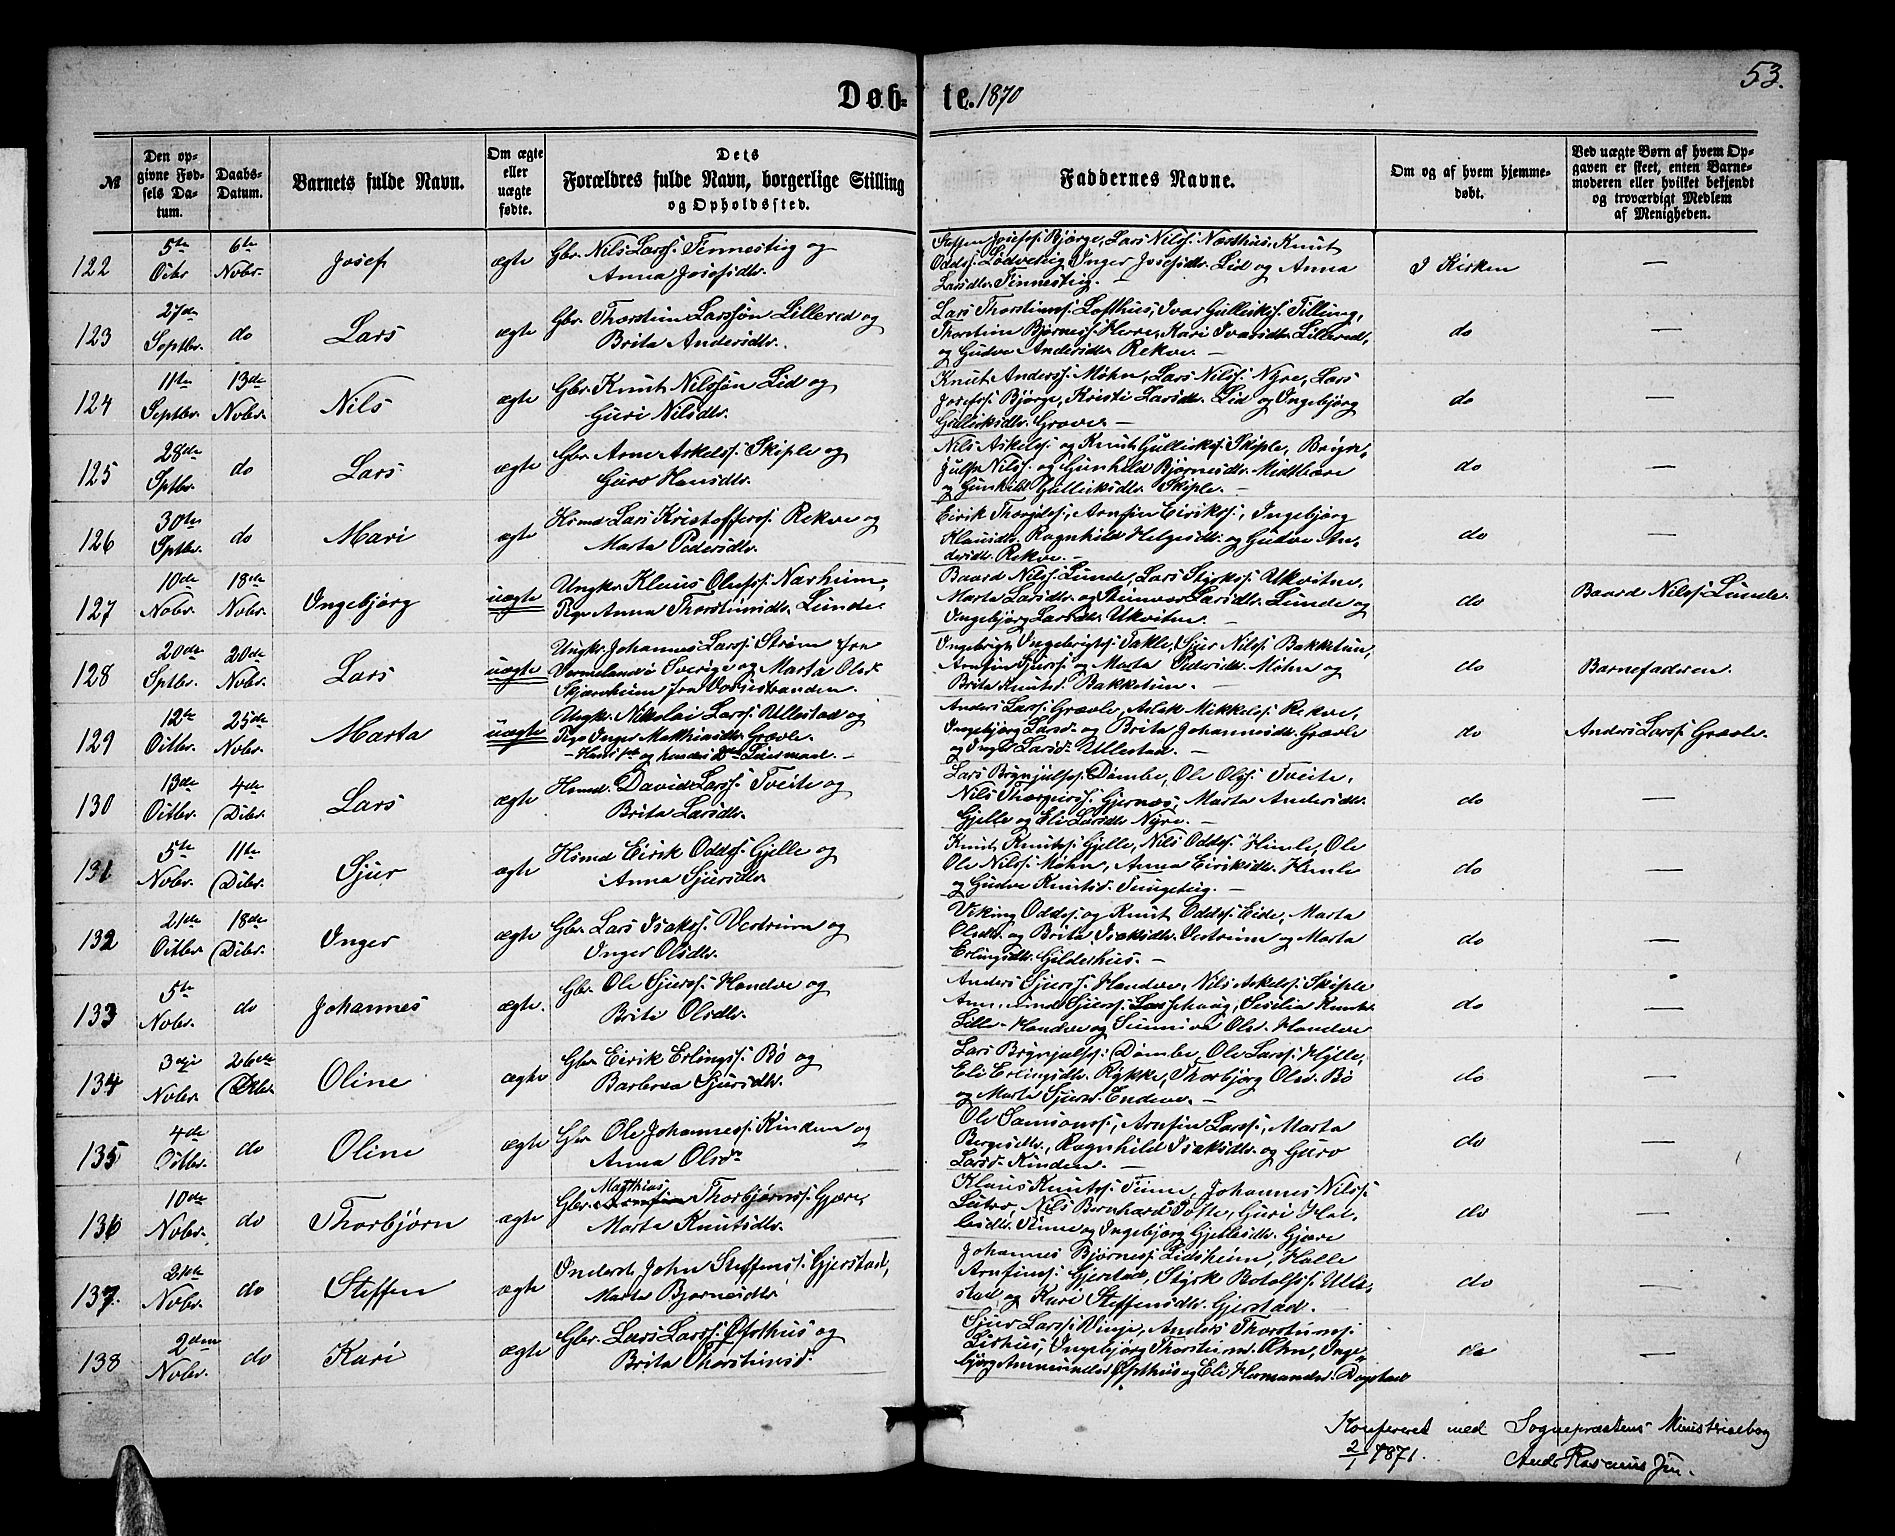 Døb-te. 1870
53.
№
Den opgivne Fødsels Datum.
Daabs-Datum.
Barnets fulde Navn.
Om ægte eller uægte fødte.
Dets Forældres fulde Navn, borgerlige Stilling og Opholdssted.
Faddernes Navne.
Om og af hvem hjemmedøbt.
Ved uægte Børn af hvem Opgaven er skeet, enten Barnemoderen eller hvilket bekjendt og troværdigt Medlem af Menigheden.
122
5te Octbr
6te Novbr.
Josef
ægte
Gbr. Nils Larss. Finnestig og
Anna Josefsdtr.
Steffen Josefss. Bjørge, Lars Nilss. Norhus, Knut
Oddss. Lødveseig, Inger Josefsdtr. Lid og Anna
Larsdtr. Finnestig. —
I Kirken
—
123
27de Septbr.
do
Lars
ægte
Gbr. Thorstein Larssøn Lillered og
Brita Andersdtr.
Lars Thorsteinss. Lofthus, Ivar Gulleikss. Tillung,
Thorstein Bjørness. Horre, Kari Ivarsdtr. Lillered,
og Gudve Andersdtr. Rekve. —
do
—
124
11te Septbr.
13de Novbr.
Nils
ægte
Gbr. Knut Nilssøn Lid og
Guri Nilsdtr.
Knut Anderss. Møhn, Lars Nilss. Nyre, Lars
Josefss. Bjørge, Kristi Larsdtr. Lid og Ingebjørg
Gulleiksdtr. Grove —
do
—
125
28de Sptbr.
do
Lars
ægte
Gbr. Arne Askelss. Skiple og
Guro Hansdtr.
Nils Askelss. og Knut Gulleikss. Skiple, Bryn-
julf Nilss. og Gunhild Bjørnesdtr. Midthære
og Gunhild Gulleiksdtr. Skiple. —
do
—
126
30te Sptbr.
do
Mari
ægte
Hsmd. Lars Kristofferss. Rekve og
Marta Pedersdtr.
Eirik Thorgilss., Arnfin Eirikss., Ingebjørg
Klausdtr., Ragnhild Helgesdtr. og Gudve An-
dersdtr. Rekve. —
do
—
127
10de Novbr.
18de Novbr.
Ingebjørg
uægte
Ungkr. Klaus Olafss. Narheim,
Pige Anna Thorsteinsdtr. Lunde.
Baard Nilss. Lunde, Lars Styrkss. Ukvitne,
Marta Larsdtr. og Steinvor Larsdtr. Lunde og
Ingebjørg Larsdtr. Ukvitne.
do
Baard Nilss. Lunde.
128
20de Sptbr.
20de Novbr.
Lars
uægte
Ungkr. Johannes Larss. Strøm fra
Vermeland i Sverige og Marta Olsd.
Skjærsheim fra Vossestranden.
Ingebrigt Ingebrigtss. Takle, Sjur Nilss. Bakketun,
Arnfin Sjurss. og Marta Pedersdtr. Møhn og
Brita Knutsd. Bakketun. —
do
Barnefaderen.
129
12te Octbr.
25de Novbr.
Marta
uægte
Ungkr. Nikolai Larss. Ullestad og
Pige Inger Matthiasdtr. Grøvle.
— Hans 1ste og hendes 2det Leiermaal. —
Anders Larss. Grøvle, Aslak Mikkelss. Rekve,
Ingebjørg Larsd. og Brita Johannesdtr. Grøvle
og Ingd Larsd. Ullestad. —
do
Anders Larss. Grøvle.
130
13de Octbr.
4de Debr.
Lars
ægte
Hsmd. David Larss. Tveite og
Brita Larsdtr.
Lars Brynjulfss. Dømbe, Ole Olss. Tveite,
Nils Thorgerss. Gjernæs, Marta Andersdtr.
Gjelle og Eli Larsdtr. Nyre. —
do
—
131
5te Novbr.
11te Debr.
Sjur
ægte
Hsmd Eirik Oddss. Gjelle og
Anna Sjursdtr.
Knut Knutss. Gjelle, Nils Oddss. Himle, Ole
Ole Nilss. Møhn, Anna Eiriksdtr. Himle
og Gudve Knutsd. Tungeteig. —
do
—
132
21de Octbr.
18de Debr.
Inger
ægte
Gbr. Lars Isakss. Vestrem og
Inger Olsdtr.
Viking Oddss. og Knut Oddss. Eide, Marta
Olsdtr. og Brita Isaksdtr. Vestrem og Marta
Erlingsdtr. Gilderhus. —
do
—
133
5te Novbr.
do
Johannes
ægte.
Gbr. Ole Sjurss. Handve og
Brite Olsdtr.
Anders Sjurss. Handve, Nils Askelss. Skiple
Sjurss. Seselia Knutsd.
Lille-Handve og Sunniva Olsd. Handve
do
—
134
3die Novbr.
26de Debr.
Oline
ægte
Gbr. Eirik Erlingss. Bø og
Barbroa Sjursdtr.
Lars Brynjulfss. Dømbe, Ole Larss. Hylle,
Eli Erlingsdtr. Rykke, Thorbjørg Olsd. Bø
og Marta Sjursd. Endeve. —
do
—
135
4de Octbr.
do
Oline
ægte
Gbr. Ole Johanness. Kinden og
Anna Olsdtr
Ole Samsonss., Arnfin Larss., Marta
Bergesdtr., Ragnhild Isaksdtr. og Guro
Larsd. Kinden. —
do
—
136
10de Novbr.
do
Thorbjørn
ægte
Matthias
Gbr. Thorbjørnss. Gjære,
Marta Knutsdtr.
Klaus Knutss. Finne, Johannes Nilss.
Lutro, Nils Bernhard Tofte, Guri Hal-
lesdtr. Finne og Ingebjørg Gjertesdtr. Gjære
do
—
137.
21de Novbr.
do
Steffen
ægte
Inderst. John Steffenss. Gjerstad,
Marta Bjørnesdtr.
Johannes Bjørness. Lidsheim, Halle
Arnfinss. Gjerstad, Styrk Botolfss. Ulle-
stad og Kari Steffensdtr. Gjerstad.
do
—
138
2den Novbr.
do
Kari
ægte
Gbr. Lars Larss. Øfsthus og
Brita Thorsteinsd.
Sjur Larss. Vinje, Anders Thorsteinss.
Lirhus, Ingebjørg Thorsteinsd. Øhn, Inge-
bjørg Ammundsd. Øfsthus og Eli Hermundsd. Dagstad
do
—
Konfereret med Sognepræstens Ministerialbog
2/1 1871. Ands Rasmus Jen.